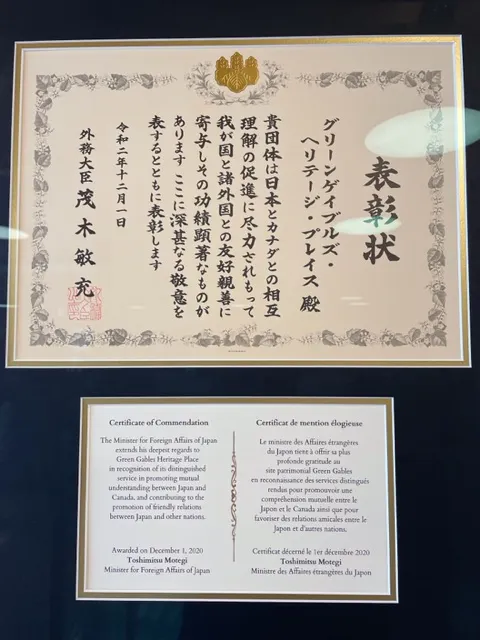 表彰状
グリーンゲイブルズ・
ヘリテージ・プレイス 殿
貴団体は日本とカナダとの相互
理解の促進に尽力されもって
我が国と諸外国との友好親善に
寄与しその功績顕著なものが
あります ここに深甚なる敬意を
表するとともに表彰します
令和二年十二月一日
外務大臣 茂木敏充
Certificate of Commendation
The Minister for Foreign Affairs of Japan
extends his deepest regards to
Green Gables Heritage Place
in recognition of its distinguished
service in promoting mutual
understanding between Japan and
Canada, and contributing to the
promotion of friendly relations
between Japan and other nations.
Awarded on December 1, 2020
Toshimitsu Motegi
Minister for Foreign Affairs of Japan
Certificat de mention élogieuse
Le ministre des Affaires étrangères
du Japon tient à offrir sa plus
profonde gratitude au
site patrimonial Green Gables
en reconnaissance des services distingués
rendus pour promouvoir une
compréhension mutuelle entre le
Japon et le Canada ainsi que pour
favoriser des relations amicales entre le
Japon et d'autres nations.
Certificat décerné le 1er décembre 2020
Toshimitsu Motegi
Ministre des Affaires étrangères du Japon